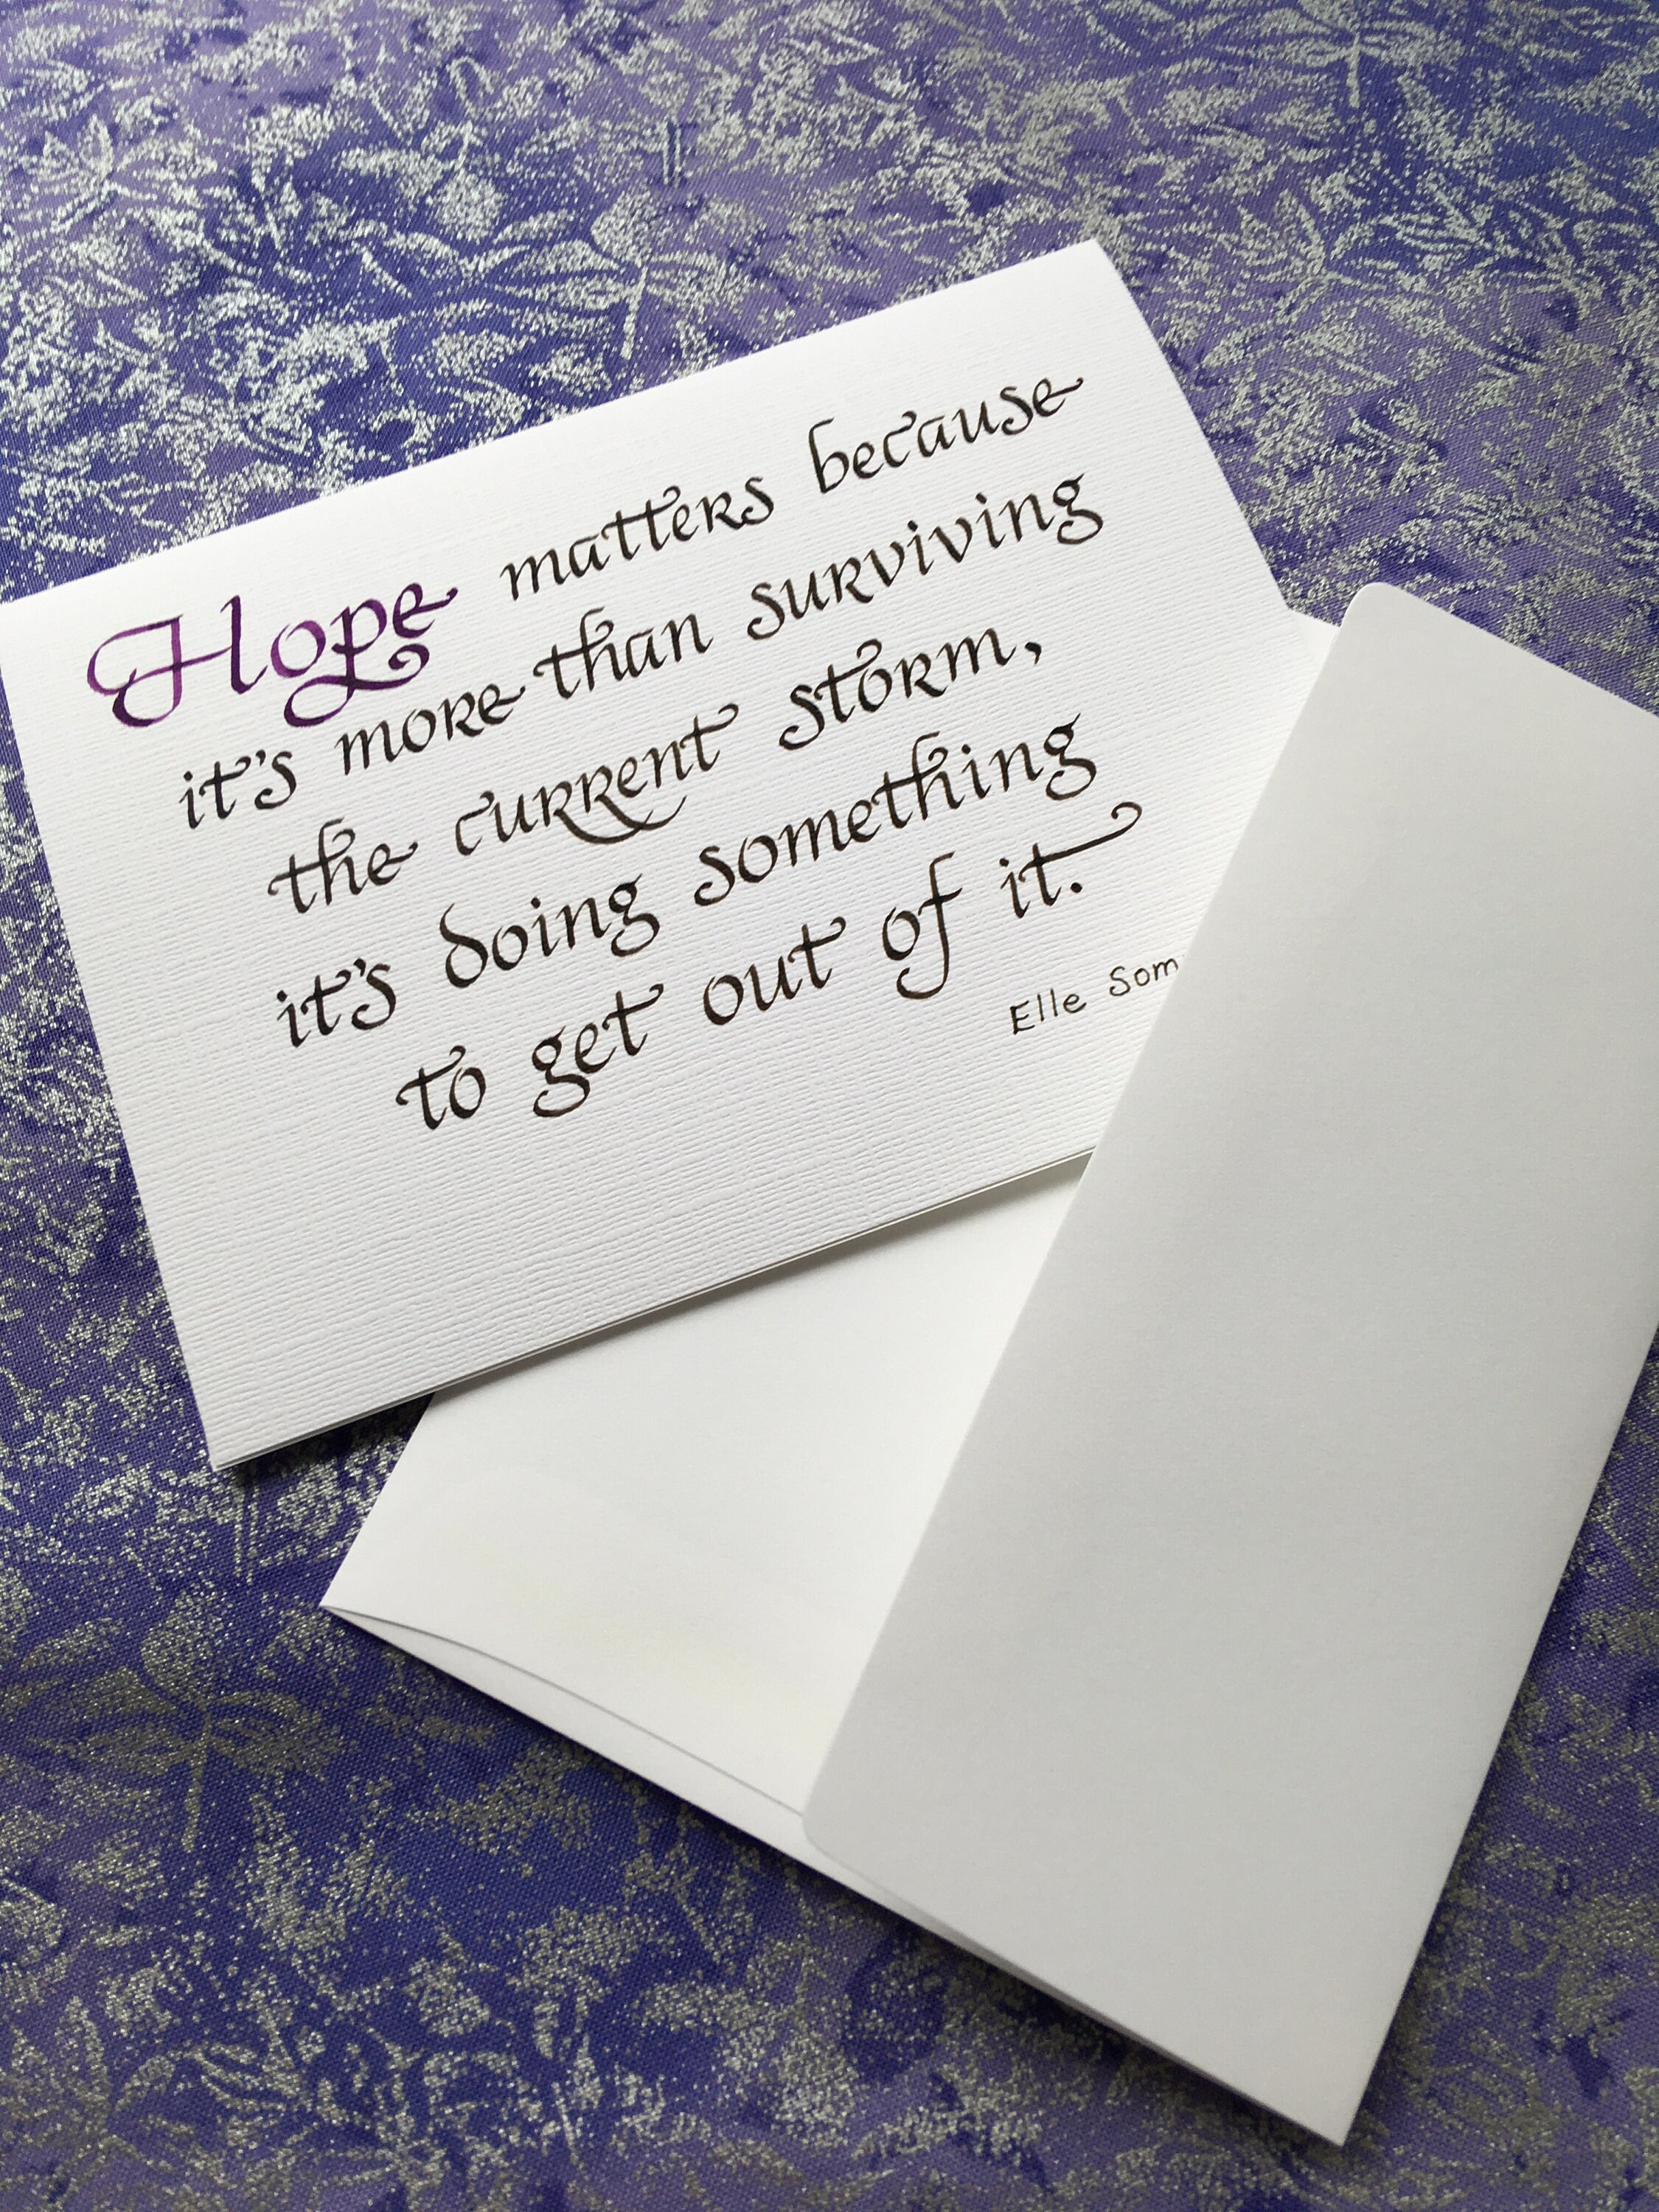 Hope matters because
it's more than surviving
the current storm,
it's doing something
to get out of it.
Elle